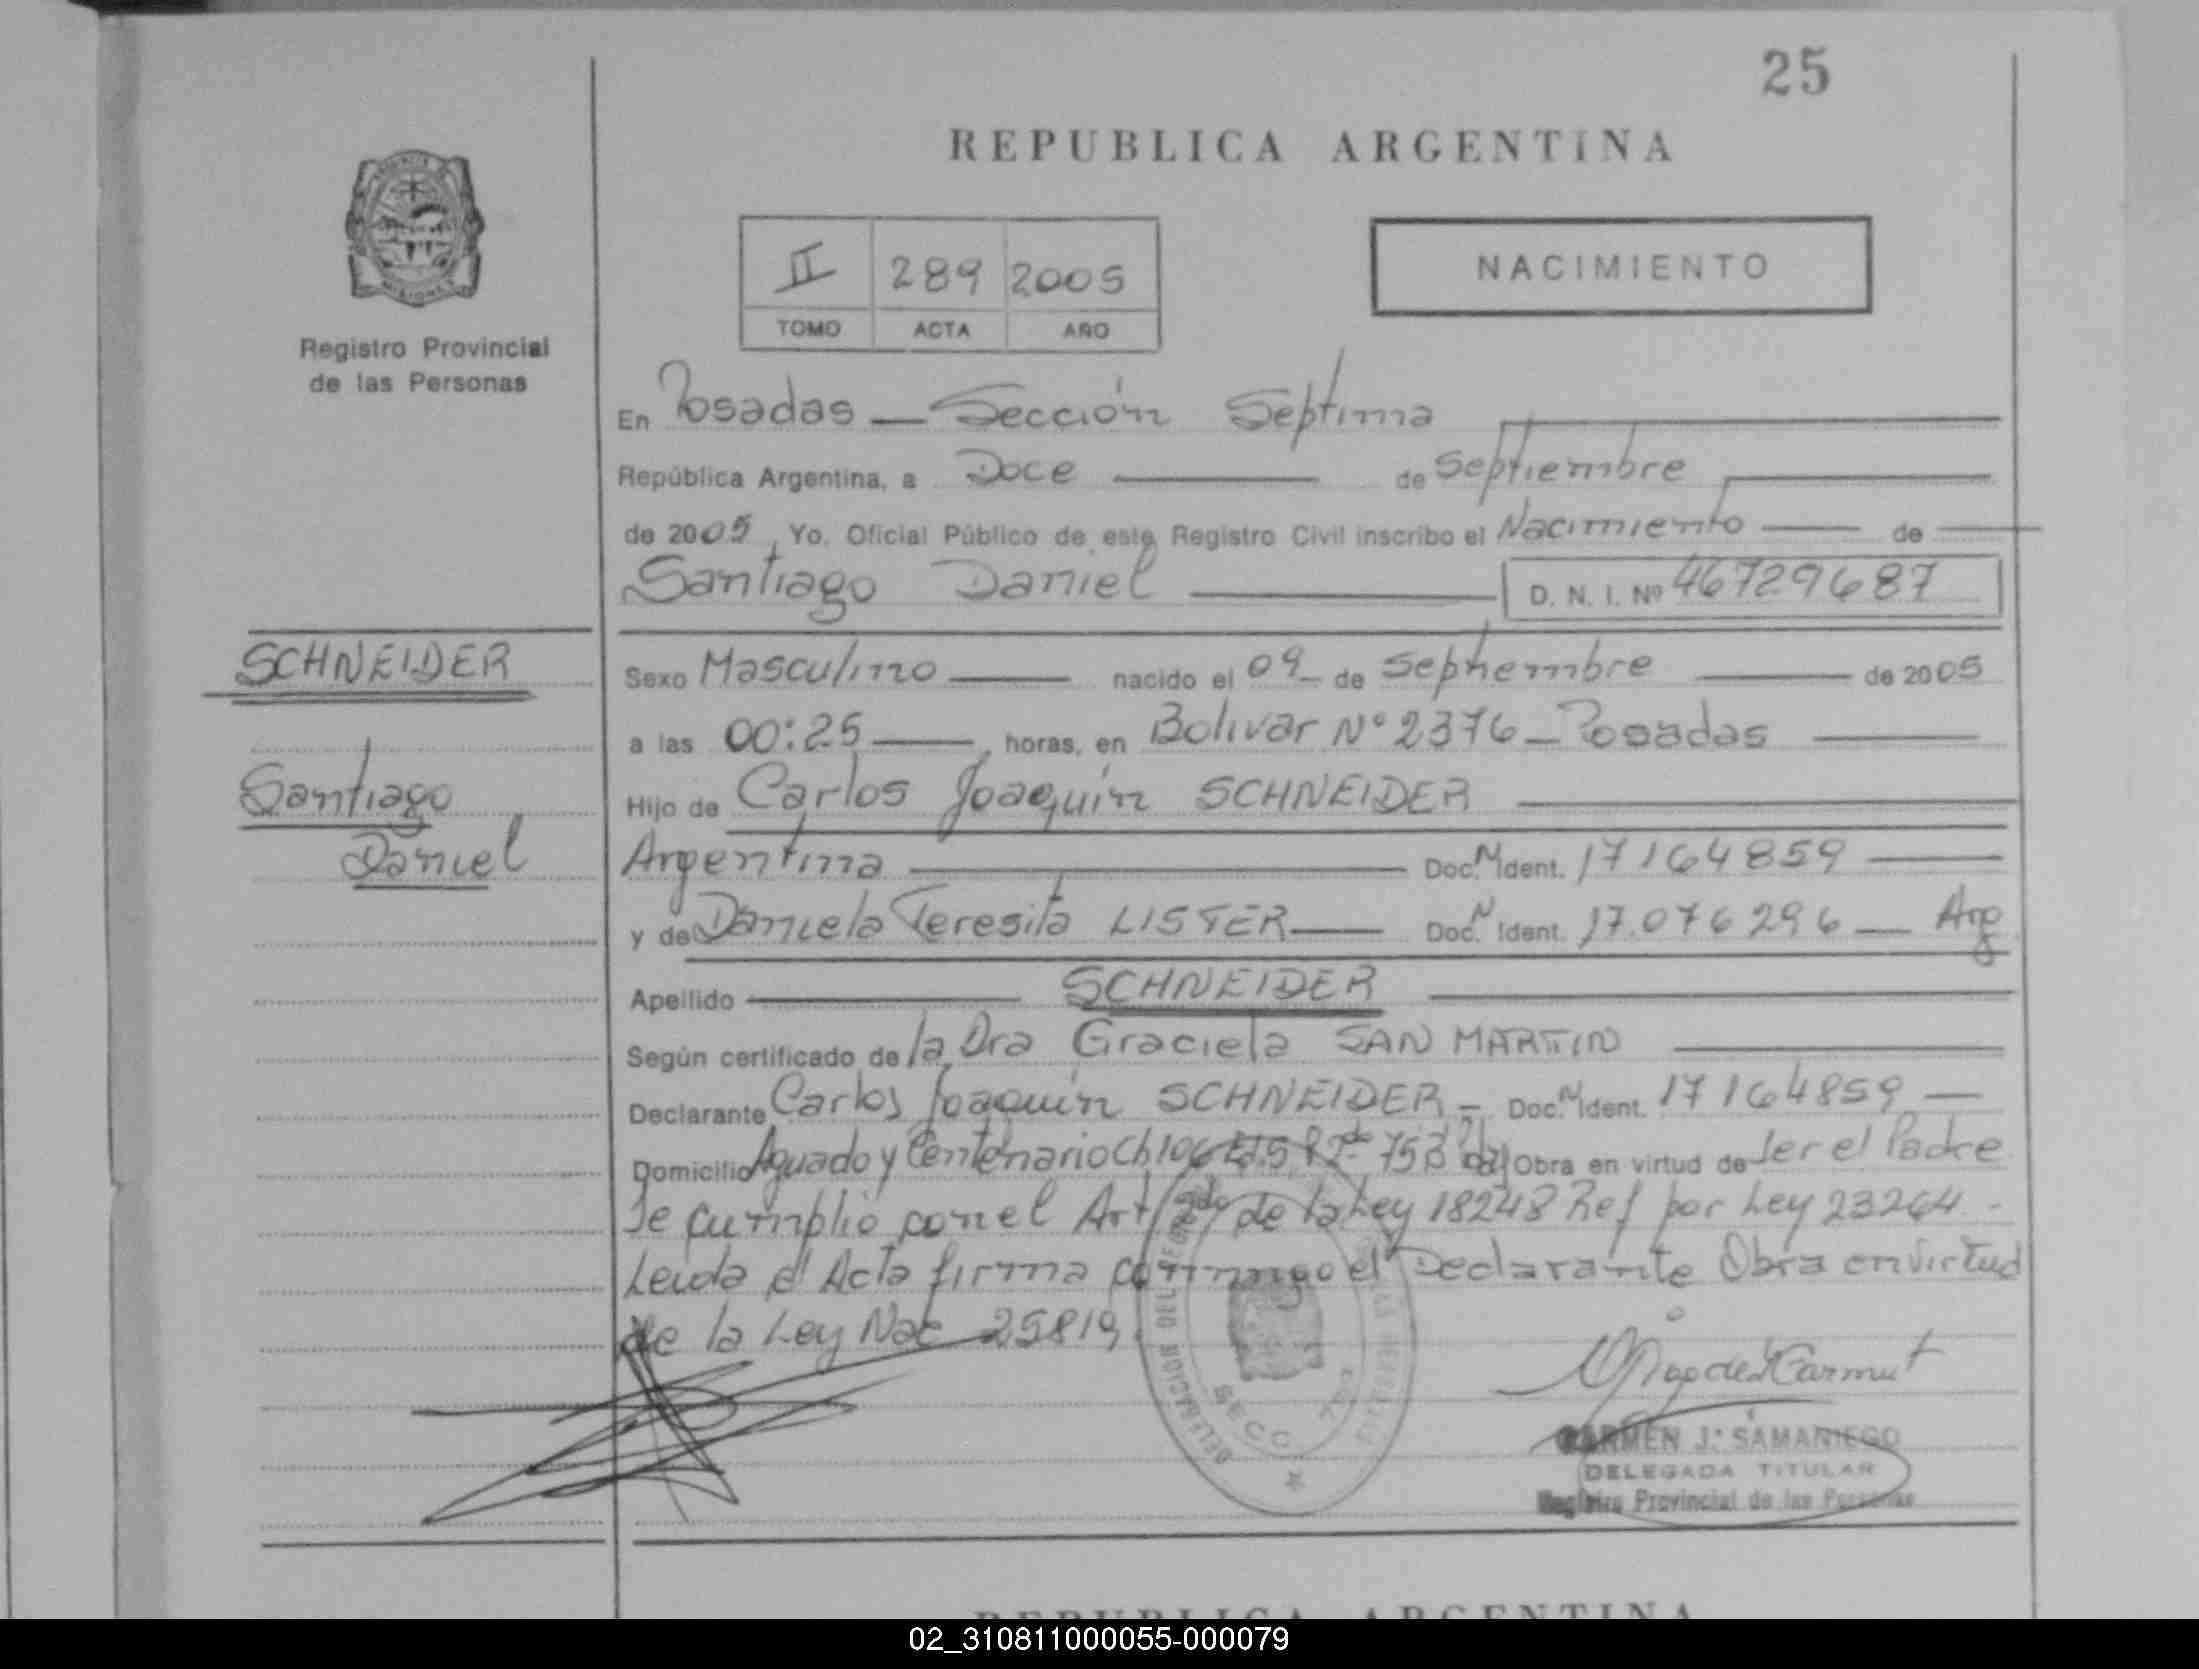 25
REPUBLICA ARGENTINA
II 289 2005
TOMO ACTA AÑO
NACIMIENTO
MISIONES
Registro Provincial
de las Personas
En Posadas — Sección Septima
República Argentina, a Doce de Septiembre
de 2005, Yo, Oficial Público de este Registro Civil inscribo el Nacimiento de
Santiago Daniel D. N. I. Nº 46729687
SCHNEIDER
Santiago
Daniel
Sexo Masculino nacido el 09 de Septiembre de 2005
a las 00:25, horas, en Bolivar Nº 2376 — Posadas
Hijo de Carlos Joaquín SCHNEIDER
Argentina Doc. N Ident. 17164859
y de Daniela Teresita LISTER Doc. N Ident. 17.076296 — Arg
Apellido SCHNEIDER
Según certificado de la Dra Graciela SAN MARTIN
Declarante Carlos Joaquín SCHNEIDER - Doc. N Ident. 17164859
Domicilio Aguado y Centenario Ch 106 753 Obra en virtud de ser el Padre
Se cumplió con el Art 2do de la Ley 18248 Ref por Ley 23264 -
Leida el Acta firma conmigo el Declarante Obra en virtud
de la Ley Nac 25819.
DELEGACION DEL
SECC 7ma
CARMEN J. SAMANIEGO
DELEGADA TITULAR
Registro Provincial de las Personas
REPUBLICA ARGENTINA
02_310811000055-000079